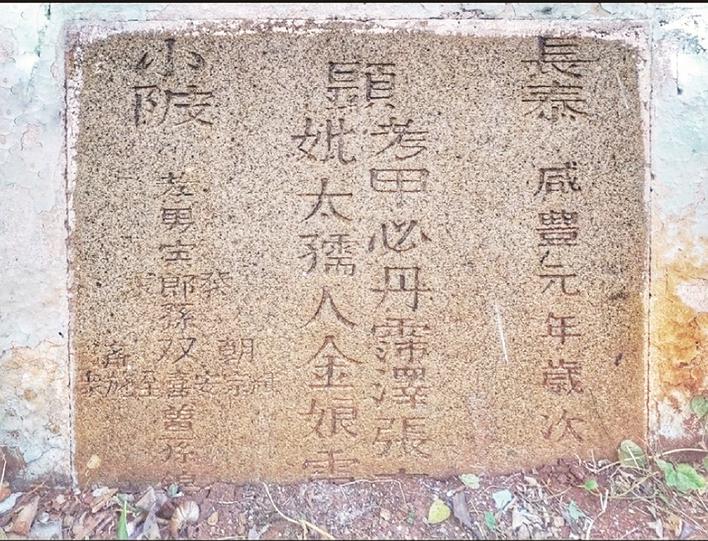 長泰
咸豐元年歲次
顕
考甲必丹霈澤張
妣太孺人金娘
小陂
孝男寅郎孫双喜曾孫
朝宗
安
至